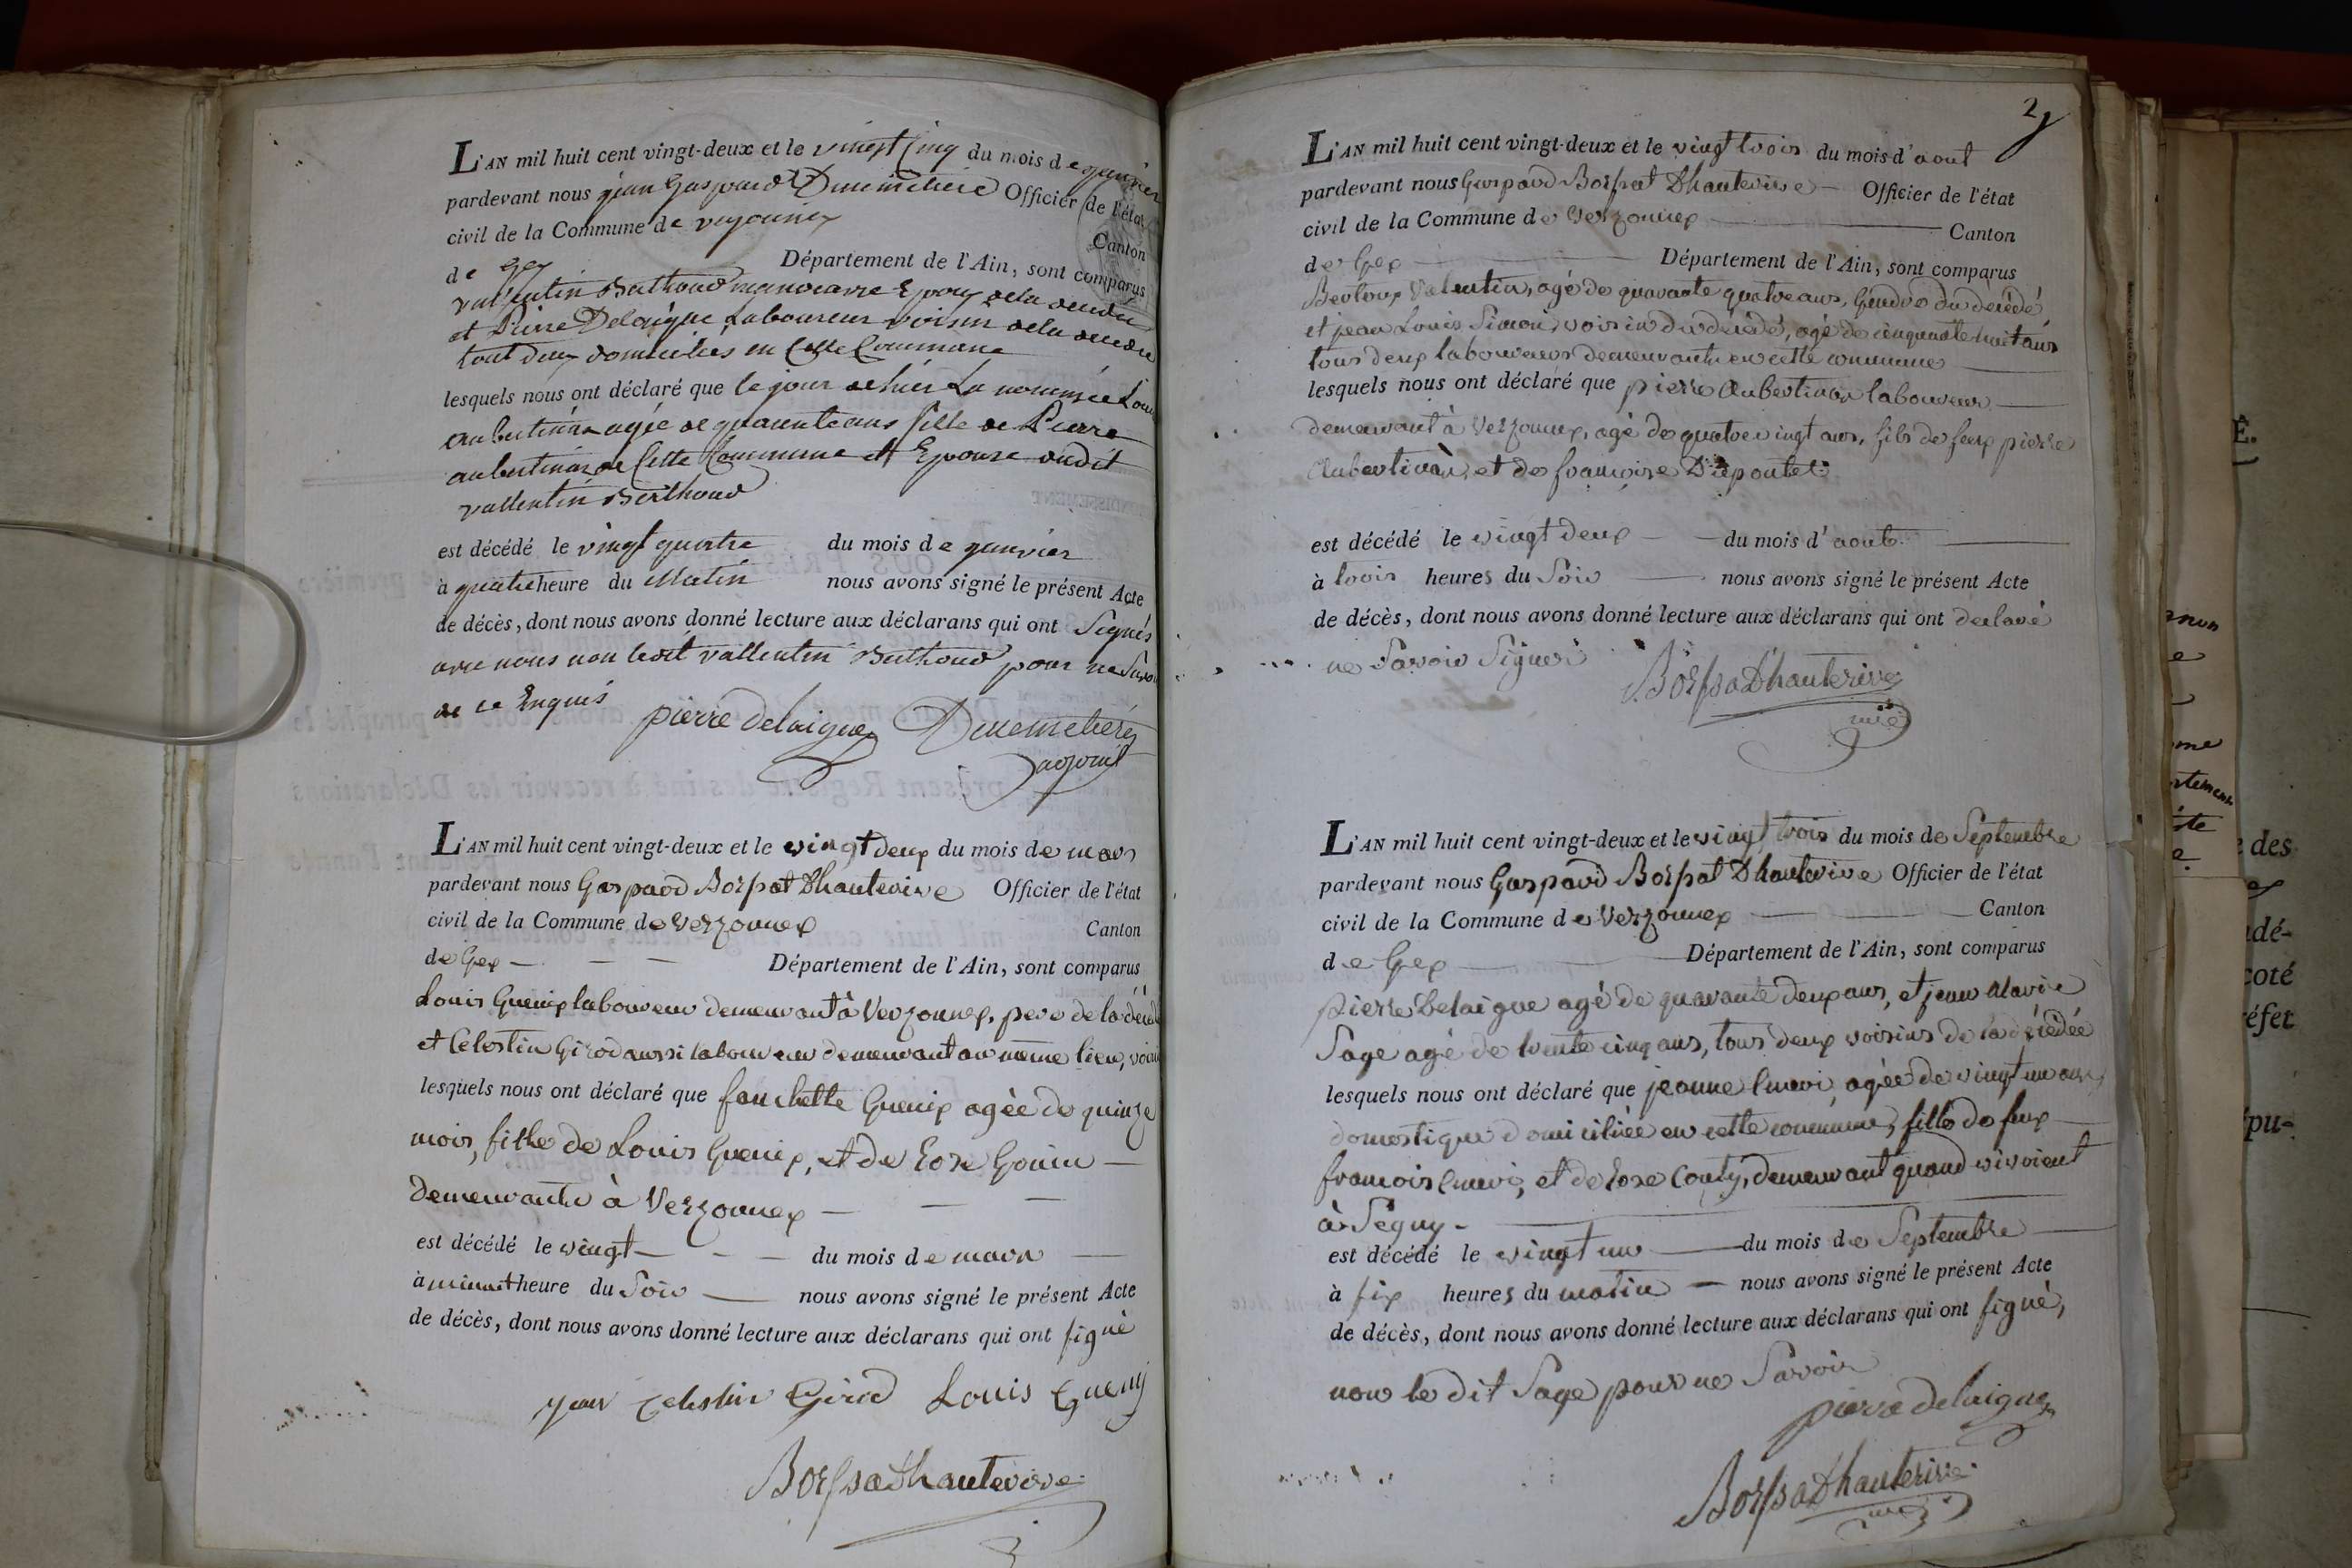 L'AN mil huit cent vingt-deux et le vingt Cinq du mois de janvier
pardevant nous jean Gaspard Dumetiere Officier de l'état
civil de la Commune de
Canton
de gex Département de l'Ain, sont comparus
vallentin Berthoud manoeuvre Epoux de la
et Pierre Delaigue Laboureur voisin de la
tout deux domicilies en Cette Commune
lesquels nous ont déclaré que le jour de hier La nommée
aubertinan agée de quarente ans fille de Pierre
aubertinan de Cette Commune et Epouse dudit
vallentin Berthoud
est décédé le vingt quatre du mois de janvier
à quatre heure du Matin nous avons signé le présent Acte
de décès, dont nous avons donné lecture aux déclarans qui ont Signés
avec nous non ledit vallentin Berthoud pour ne
de ce Enquis pierre delaigue
adjoint
L'AN mil huit cent vingt-deux et le vingt deux du mois de mars
pardevant nous Gaspard Borssat Dhauterive Officier de l'état
civil de la Commune de Verzonnex Canton
de Gex Département de l'Ain, sont comparus
Louis Guenix laboureur demeurant à Verzonnex, pere de la
et Celestin Girod aussi laboureur demeurant au même lieu,
lesquels nous ont déclaré que fanchette Guenix agèe de quinze
mois, fille de Louis Guenix, et de Rose Gonin
demeurants à Verzonnex
est décédé le vingt du mois de mars
à minuit heure du Soir nous avons signé le présent Acte
de décès, dont nous avons donné lecture aux déclarans qui ont signè
jean Celestin Girod Louis Gueny
Borssat Dhauterive
2
L'AN mil huit cent vingt-deux et le vingt trois du mois d'aout
pardevant nous Gaspard Borssat Dhauterive Officier de l'état
civil de la Commune de Verzonnex Canton
de Gex Département de l'Ain, sont comparus
Valentin, agé de quarante quatre ans, Gendre du décédé
et jean Louis Simon, voisin du décédé, agé de cinquante huit ans
tous deux laboureurs demeurants en cette commune
lesquels nous ont déclaré que pierre Aubertinan laboureur
demeurant à Verzonnex, agé de quatre vingt ans, fils de feux pierre
Aubertinan, et de françoise
est décédé le vingt deux du mois d'aout
à trois heures du Soir nous avons signé le présent Acte
de décès, dont nous avons donné lecture aux déclarans qui ont declaré
ne Savoir Signer Borssat Dhauterive
L'AN mil huit cent vingt-deux et le vingt trois du mois de Septembre
pardevant nous Gaspard Borssat Dhauterive Officier de l'état
civil de la Commune de Verzonnex Canton
de Gex Département de l'Ain, sont comparus
pierre Delaigue agé de quarante deux ans, et jean Marie
Sage agé de trente cinq ans, tous deux voisins de la décèdée
lesquels nous ont déclaré que jeanne agèe de vingt un ans,
domestique domiciliée en cette commune, fille de feux
francois et de Rose Couty, demeurant quand vivoient
à Segny
est décédé le vingt un du mois de Septembre
à six heures du matin nous avons signé le présent Acte
de décès, dont nous avons donné lecture aux déclarans qui ont signé,
non le dit Sage pour ne Savoir
pierre delaigue
Borssat Dhauterive